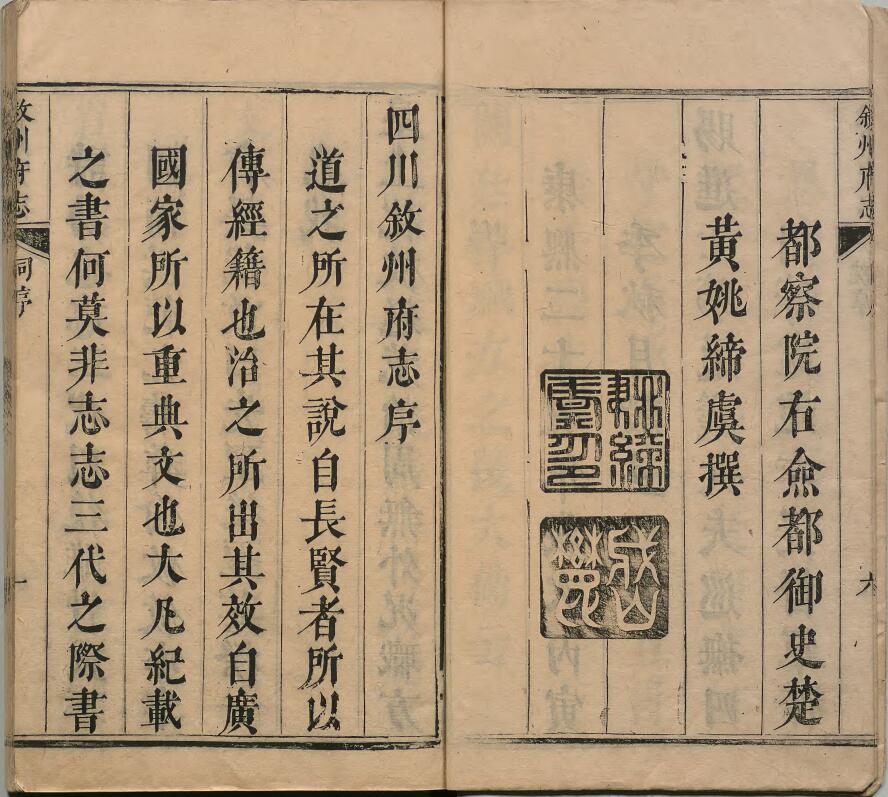 敘州府志
六
都察院右僉都御史楚
黃姚締虞撰
姚締虞印
四川敘州府志序
道之所在其說自長賢者所以
傳經籍也治之所出其效自廣
國家所以重典文也大凡紀載
之書何莫非志志三代之際書
敘州府志
同序
一